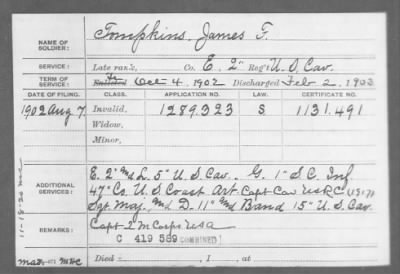 NAME OF SOLDIER: Tompkins, James F.
SERVICE: Late rank, Co. E, 2" Reg't U.S. Cav.
TERM OF SERVICE: Enlisted Oct 4, 1902 Discharged Feb 2, 1903
DATE OF FILING. CLASS. APPLICATION NO. LAW. CERTIFICATE NO.
1902 Aug 7 Invalid, 1289.323 S 1131.491
Widow,
Minor,
ADDITIONAL SERVICES: E. 2" and L. 5" U.S. Cav. G. 1" S.C. Inf.
47" Co. U.S. Coast Art Capt Cav USRC
Sgt Maj. and D. 11" and Band 15" U.S. Cav.
REMARKS: Capt 2 M Corps USA
C 419 589 COMBINED
Died , 1 , at